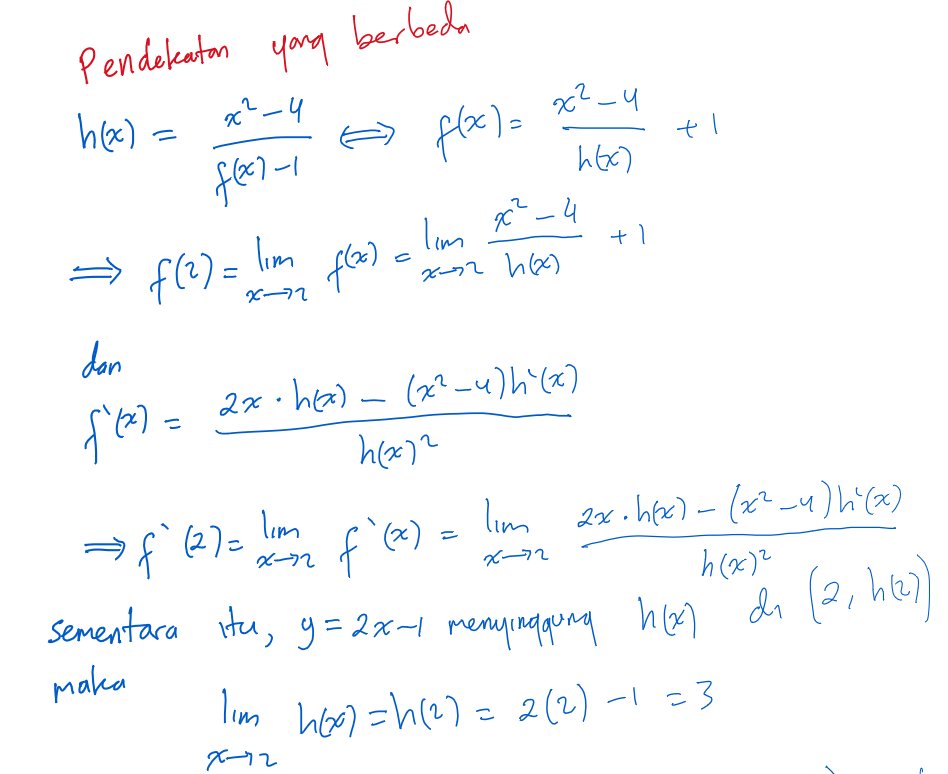 Pendekatan yang berbeda
h(x) = (x² - 4)/(f(x) - 1) ⟺ f(x) = (x² - 4)/h(x) + 1
⟹ f(2) = lim x→2 f(x) = lim x→2 (x² - 4)/h(x) + 1
dan
f`(x) = (2x · h(x) - (x² - 4)h`(x))/h(x)²
⟹ f`(2) = lim x→2 f`(x) = lim x→2 (2x · h(x) - (x² - 4)h`(x))/h(x)²
sementara itu, y = 2x - 1 menyinggung h(x) di (2, h(2))
maka
lim x→2 h(x) = h(2) = 2(2) - 1 = 3